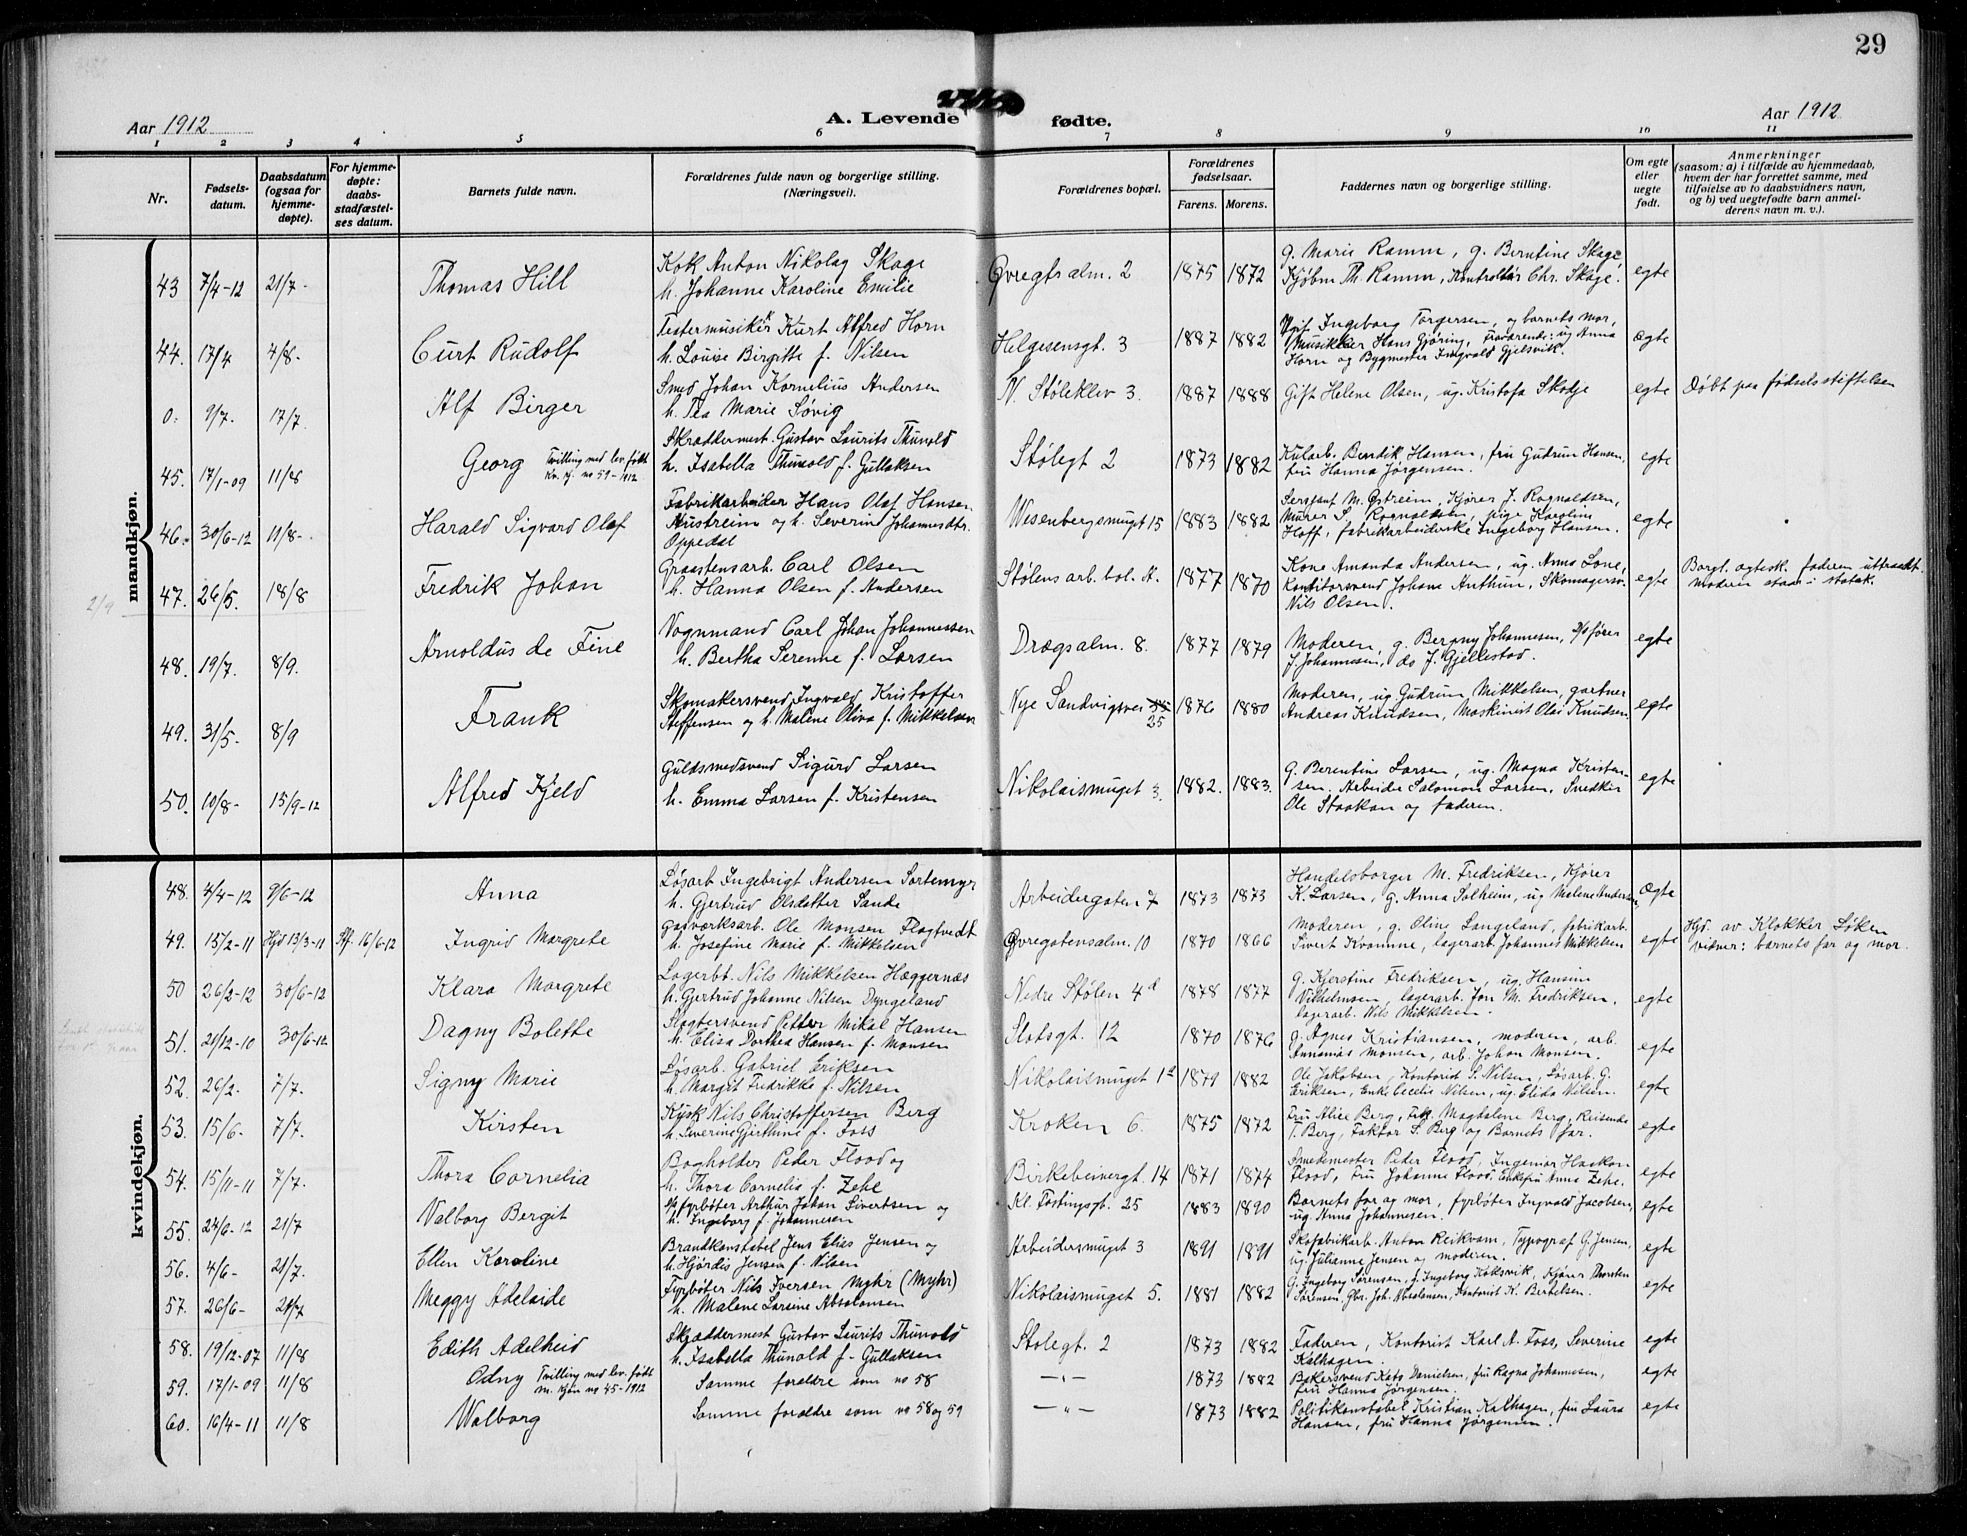 29
Aar 1912
A. Levende fødte.
Aar 1912
1 2 3 4 5 6 7 8 9 10 11
Nr.
Fødsels-
datum.
Daabsdatum
(ogsaa for
hjemme-
døpte).
For hjemme-
døpte:
daabs-
stadfæstel-
ses datum.
Barnets fulde navn.
Forældrenes fulde navn og borgerlige stilling.
(Næringsvei).
Forældrenes bopæl.
Forældrenes
fødselsaar.
Farens. Morens.
Faddernes navn og borgerlige stilling.
Om egte
eller
uegte
født.
Anmerkninger
(saasom: a) i tilfælde av hjemmedaab,
hvem der har forrettet samme, med
tilføielse av to daabsvidners navn,
og b) ved uegtefødte barn anmel-
derens navn m. v.).
mandkjøn.
43 7/4-12 21/7- Thomas Hill
Kok Anton Nikolay Skage
h. Johanne Karoline Emilie
Øvregts alm. 2 1875 1872
g. Marie Ramm, g. Berntine Skage,
Kjøbm Th. Ramm, Kontrollør Chr. Skage.
egte
44. 17/4 4/8- Curt Rudolf
Kurt Alfred Horn
h. Louise Birgitte f. Nilsen
Helgesensgt. 3 1887 1882
Ingeborg Torgersen, og barnets mor,
Musikker Hans Gjøring, Fraværende: ug Anna
Horn og Bygmester Ingvald Gjelsvik.
Ægte
0. 9/7. 17/7. Alf Birger
Smed Johan Kornelius Andersen
h. Tea Marie Søvig
N. Støleklev 3. 1887 1888
Gift Helene Olsen, ug. Kristofa Skotje
egte
Døbt paa fødselsstiftelsen
45. 17/1-09 11/8 Georg Tvilling med lev. født
Kv. kj. no 59-1912.
Skræddermest. Gustav Laurits Thunold
h. Isabella Thunold f. Gullaksen
Stølegt 2 1873 1882
Kularb. Bendik Hansen, fru Gudrun Hansen,
fru Hanna Jørgensen.
egte
46. 30/6-12 11/8- Harald Sigvard Olaf
Fabrikarbeider Hans Olaf Hansen
Austreim og h. Severine Johannesdtr.
Oppedal
Wesenbergsmugt 15 1883 1882
Sergeant M. Østreim, Kjører J. Ragnaldsen,
Murer S. Ragnaldsen, pige Karoline
Hoff, fabrikarbeiderske Ingeborg Hansen.
egte
2/9
47. 26/5. 18/8 Fredrik Johan
Graastensarb. Carl Olsen
h. Hanna Olsen f. Andersen
Stølens arb. bol. A. 1877 1870
Kone Amanda Andersen, ug. Anna Lone,
Konditorsvend Johane Anthun, Skomagersv.
Nils Olsen.
egte
Borgl. egtesk. faderen uttraadt
moderen staar i statsk.
48. 19/7. 8/9. Arnoldus de Fine
Vognmand Carl Johan Johannessen
h. Bertha Serenne f. Larsen
Dragsalm. 8. 1877 1879
Moderen, g. Bergny Johannesen, D/s fører
J. Johannesen, do J. Gjellestad.
egte
49. 31/5- 8/9 Frank
Skomakersvend Ingvald Kristoffer
Steffensen og h. Malene Oliva f. Mikkelsen
Nye Sandvigsvei 25 1876 1880
Moderen, ug. Gudrun Mikkelsen, gartner
Andreas Knudsen, Maskinist Olai Knudsen.
egte
50. 10/8- 15/9-12 Alfred Kjeld
Guldsmedsvend Sigurd Larsen
h. Emma Larsen f. Kristensen
Nikolaismuget 3. 1882. 1883.
G. Berentine Larsen, ug. Magna Kristen-
sen. Arbeider Salomon Larsen, Snedker
Ole Staakan og faderen.
egte
kvindekjøn.
48. 4/4-12 9/6-12 Anna
Løsarb Ingebrigt Andersen Sortemyr
h. Gjertrud Olsdatter Sande
Arbeidergaten 7 1873 1873
Handelsborger M. Fredriksen, Kjører
K. Larsen, g. Anna Solheim, ug Malene Andersen
Ægte
49. 15/2-11 Hjd 13/3-11 Sf. 16/6-12 Ingrid Margrete
Gasværksarb. Ole Monsen Flagtvedt
h. Josefine Marie f. Mikkelsen
Øvregatensalm. 10 1870 1866
Moderen, g. Oline Langeland, fabrikarb.
Sivert Kvamme, lagerarb. Johannes Mikkelsen
egte
Hjd. av Klokker Løken
vidner: barnets far og mor.
50 26/2-12 30/6-12 Klara Margrete
Lagerbt. Nils Mikkelsen Hæggernæs
h. Gjertrud Johanne Nilsen Dyngeland
Nedre Stølen 4d 1878 1877
g. Kjerstine Fredriksen, ug. Hansine
Vilhelmsen, lagerarb. Jon M. Fredriksen.
lagerarb. Nils Mikkelsen.
egte
51. 21/12-10 30/6-12 Dagny Bolette
Slagtersvend Petter Mikal Hansen
h. Elisa Dorthea Hansen f. Monsen
Slotsgt. 12 1870 1876
g. Agnes Kristiansen, moderen, arb.
Annanias Monsen, arb. Johan Monsen.
egte
52. 26/2. 7/7. Signy Marie
Løsarb. Gabriel Eriksen
h. Margit Fredrikke f. Nilsen
Nikolaismuget 1d 1879 1882
Ole Jakobsen, Kontorist S. Nilsen, Løsarb. G.
Eriksen, Enke Cecilie Nilsen, ug. Elida Nilsen.
egte
53. 15/6- 7/7. Kirsten
Kysk Nils Christoffersen Berg
h. Severine Gjerthine f. Foss
Kroken 6. 1875 1872
Fru Alice Berg, Frk. Magdalene Berg, Reisende
T. Berg, Faktor S. Berg og Barnets far.
egte
54. 15/11-11 7/7. Thora Cornelia
Bogholder Peder Flood og
h. Thora Cornelia f. Zehe
Birkebeinergt. 14 1871 1874
Smedemester Peder Flood, Ingeniør Haakon
Flood, Fru Johanne Flood, Enkefru Anna Zehe.
egte
55. 24/6-12 21/7 Valborg Bergit
fyrbøter Arthur Johan Sivertsen og
h. Ingeborg f. Johannesen
Kl. Tostingsgt. 25 1883 1890
Barnets far og mor, fyrbøter Ingvald Jacobsen,
ug. Anna Johannesen.
egte
56. 4/6- 21/7. Ellen Karoline
Brandkonstabel Jens Elias Jensen og
h. Hjørdis Jensen f. Nilsen
Arbeidersmuget 3 1891 1891
Skofabrikarb. Anton Reikvam, Typograf G. Jensen,
ug. Julianne Jensen og moderen.
egte
57. 26/6- 21/7 Meggy Adelaide
Fyrbøter Nils Iversen Myhr (Myhr)
h. Malene Larsine Absalonsen
Nikolaismuget 5. 1881 1882
G. Ingeborg Sørensen, f. Ingeborg Koksvik, Kjører Thorsten
Sørensen, Gbr. Joh. Absalonsen, Kontorist K. Bertelsen.
egte
58. 19/12-07 11/8 Edith Adelheid
Skræddermest Gustav Laurits Thunold
h. Isabella Thunold f. Gullaksen
Stølegt. 2 1873 1882
Faderen, Kontorist Karl A. Foss, Severine
Kalhagen.
egte
59. 17/1-09 11/8 Odny Tvilling med lev. født
m. kjøn no 45-1912
Samme forældre som no 58
—"— 1873 1882
Bakersvend Kato Danielsen, fru Ragna Johannesen,
fru Hanna Jørgensen.
egte
60. 16/4-11 11/8 Walborg
Samme forældre som no 58 og 59
—"— 1873 1882
Politikonstabel Kristian Kalhagen, fru Laura
Hansen, fru Hanna Jørgensen.
egte